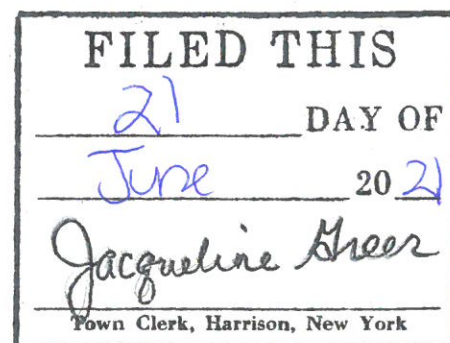 FILED THIS
21 DAY OF
June 20 21
Jacqueline Greer
Town Clerk, Harrison, New York